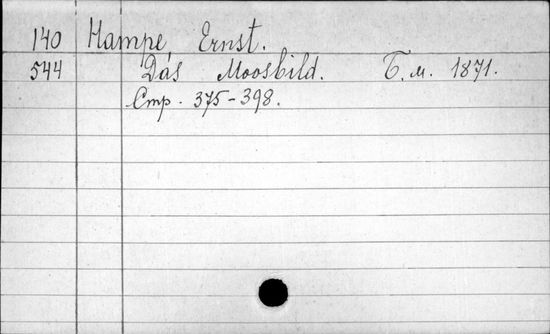 140 Hampe, Ernst.
544 Das Moosbild. Б.м. 1871.
Стр. 375-398.